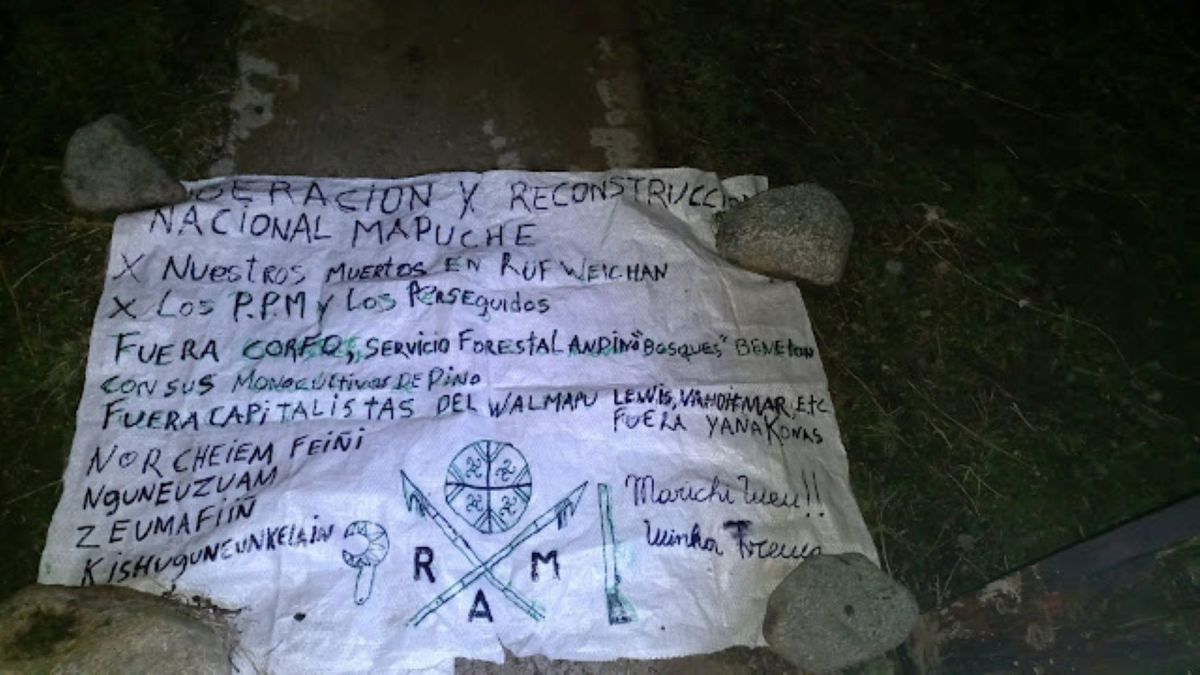 ERACION Y RECONSTRUCCI
NACIONAL MAPUCHE
X NUESTROS MUERTOS EN RUF WEICHAN
X LOS P.P.M Y LOS PERSEGUIDOS
FUERA CORFO, SERVICIO FORESTAL ANDINO "BOSQUES" BENETON
CON SUS MONOCULTIVOS DE PINO
FUERA CAPITALISTAS DEL WALMAPU LEWIS, ETC
FUERA YANAKONAS
NOR CHEIEM FEIÑI
NGUNEUZUAM
ZEUMAFIIÑ
KISHUGUNEUNKELAIN
Marichi Weu!!
Winka
R M
A